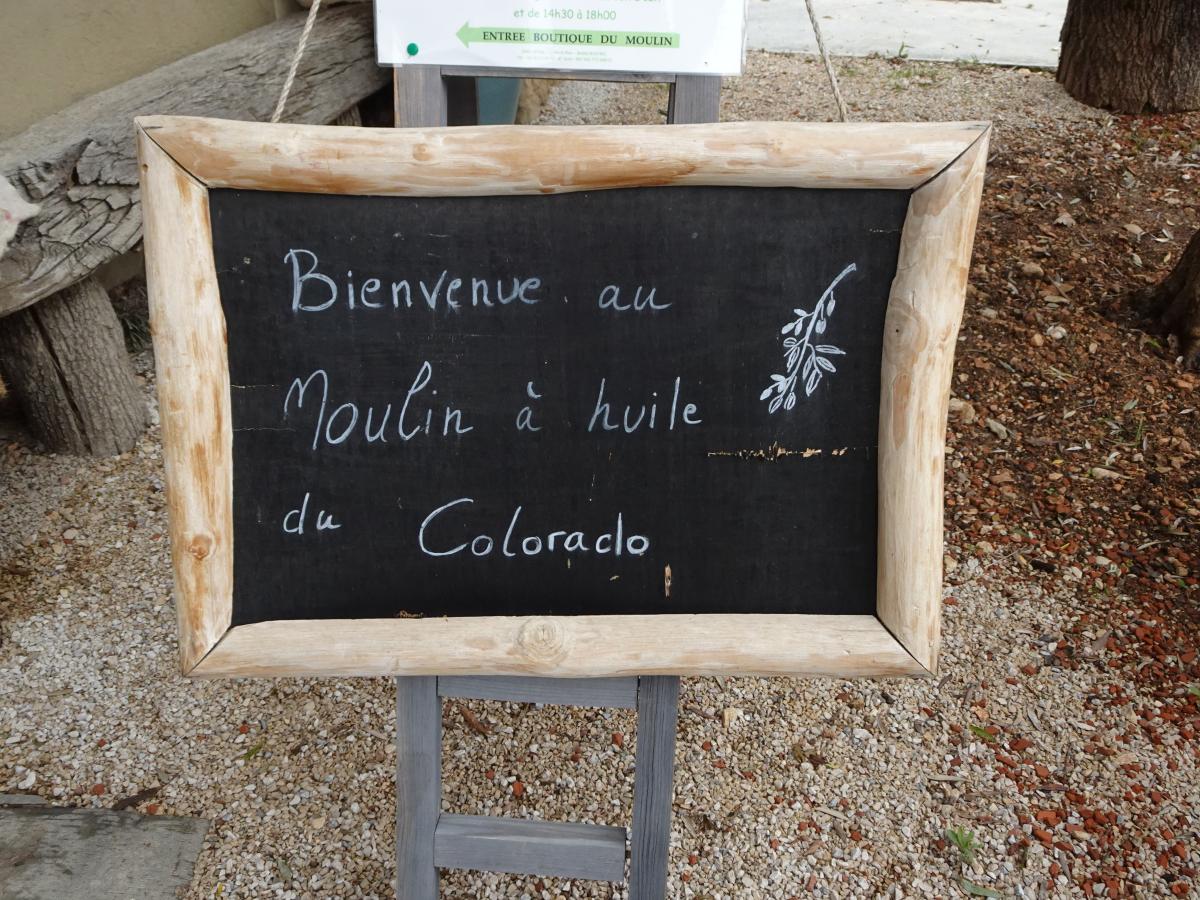 et de 14h30 à 18h00
ENTREE BOUTIQUE DU MOULIN
Bienvenue au
Moulin à huile
du Colorado